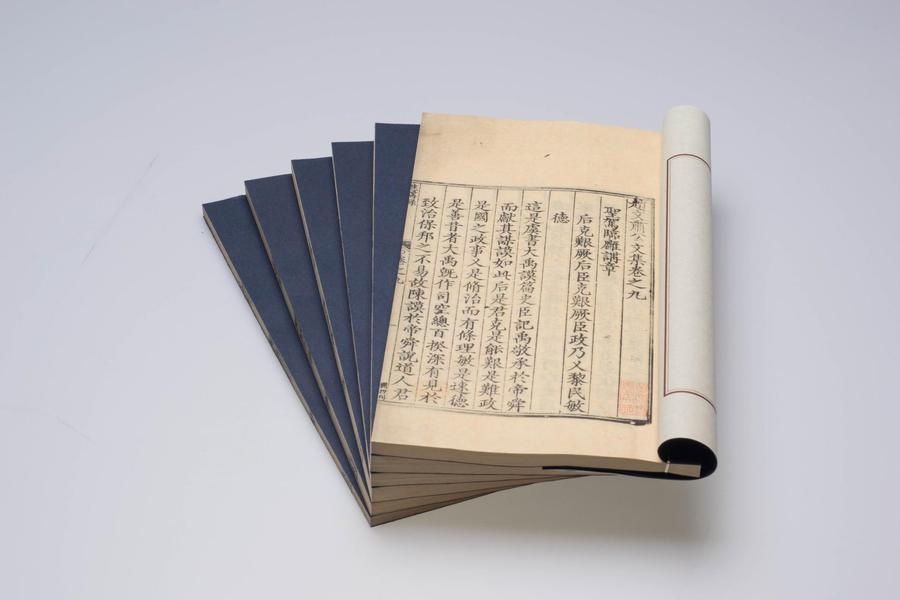 文公文集卷之九
聖駕臨廱講章
后克艱厥后臣克艱厥臣政乃乂黎民敏
德
這是虞書大禹謨篇史臣記禹敬承於帝舜
而獻其謀謨如此后是君克是能艱是難政
是國之政事乂是脩治而有條理敏是速德
是善昔者大禹旣作司空總百揆深有見於
致治保邦之不易故陳謨於帝舜說道人君
卷之九